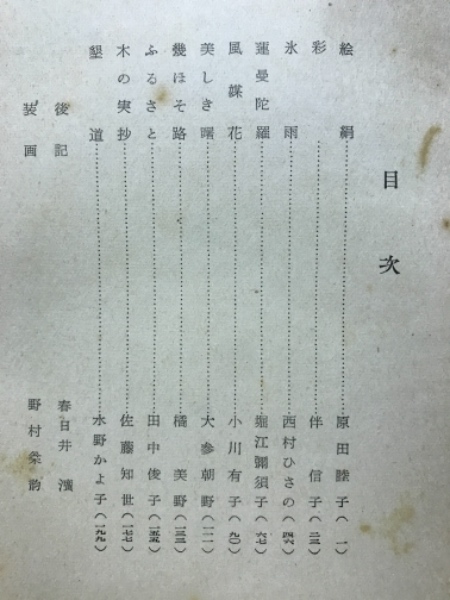 目次
絵絹 原田睦子(一)
彩 伴信子(二三)
氷雨 西村ひさの(四六)
蓮曼陀羅 堀江彌須子(六七)
風媒花 小川有子(九〇)
美しき曙 大参朝野(一一一)
幾ほそ路 橘美野(一三三)
ふるさと 田中俊子(一五五)
木の実抄 佐藤知世(一七七)
墾道 水野かよ子(一九九)
後記 春日井瀇
装画 野村粂韵